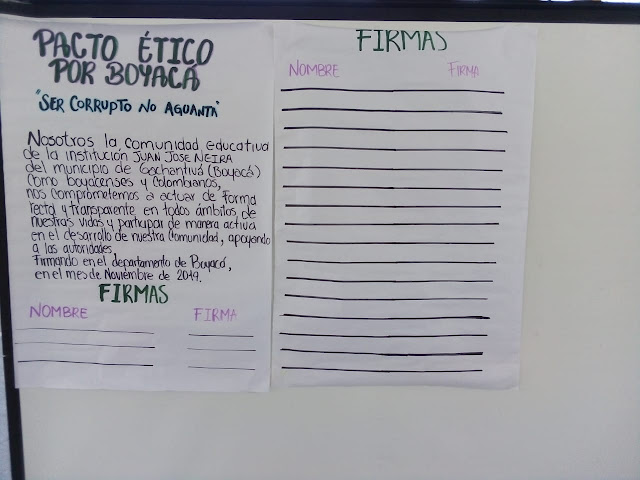 PACTO ÉTICO
POR BOYACÁ
"SER CORRUPTO NO AGUANTA"
Nosotros la comunidad educativa
de la institución JUAN JOSE NEIRA
del municipio de Gachantivá (Boyacá)
como boyacenses y colombianos,
nos comprometemos a actuar de forma
recta y transparente en todos ámbitos de
nuestras vidas y participar de manera activa
en el desarrollo de nuestra comunidad, apoyando
a las autoridades.
Firmando en el departamento de Boyacá,
en el mes de Noviembre de 2019.
FIRMAS
NOMBRE FIRMA
FIRMAS
NOMBRE FIRMA